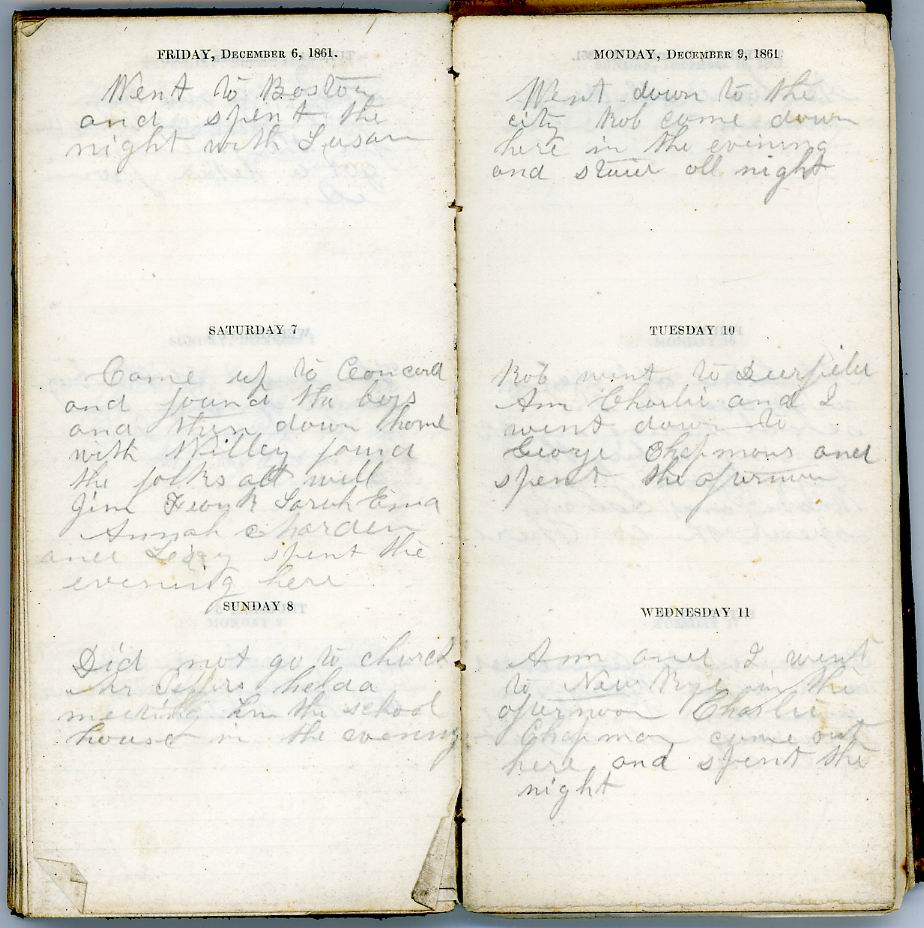 FRIDAY, DECEMBER 6, 1861.
Went to Boston
and spent the
night with Susan
SATURDAY 7
Come up to Concord
and found the boys
and then down home
with Willey found
the folks all well
Jim Frank Sarah Ema
Annah
and spent the
evening here
SUNDAY 8
Did not go to church
Mr held a
meeting in the school
house in the evening
MONDAY, DECEMBER 9, 1861
Went down to the
city Rob come down
here in the evening
and staid all night
TUESDAY 10
Rob went to Deerfield
Ann Charlie and I
went down to
George Chapmans and
spent the afternoon
WEDNESDAY 11
Ann and I went
to New Rye in the
afternoon Charlie
Chapman come out
here and spent the
night